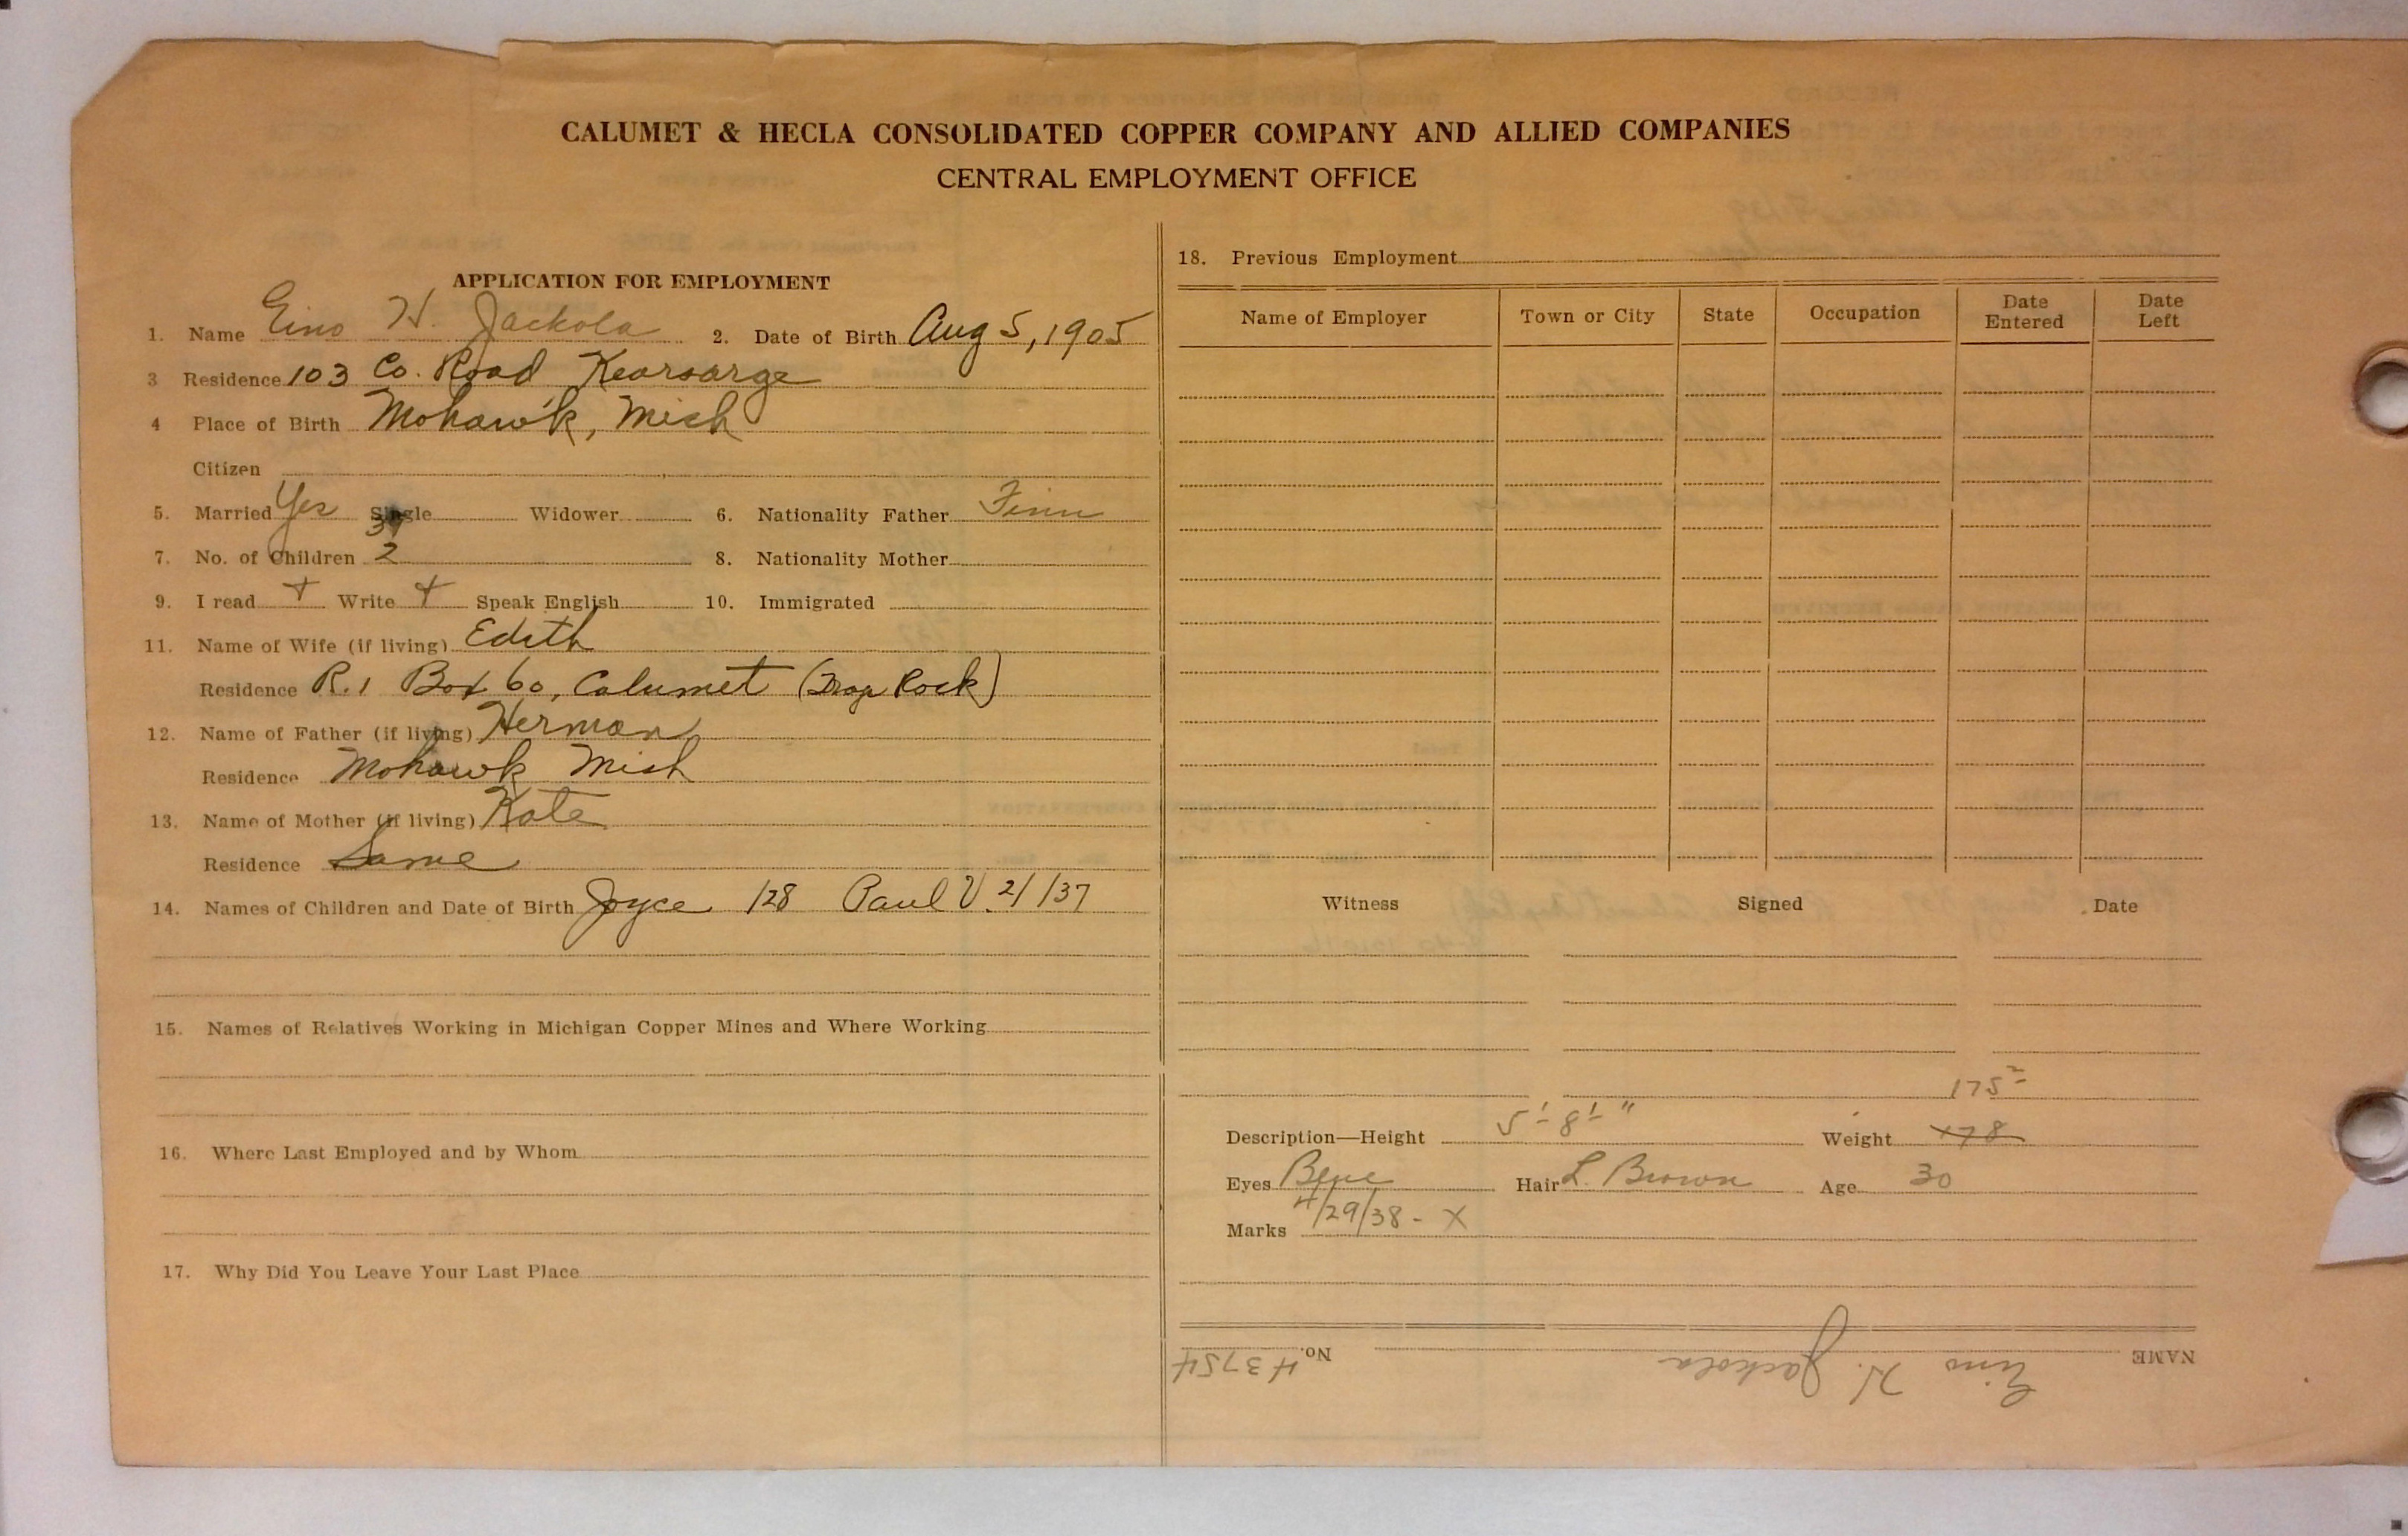 CALUMET & HECLA CONSOLIDATED COPPER COMPANY AND ALLIED COMPANIES
CENTRAL EMPLOYMENT OFFICE
APPLICATION FOR EMPLOYMENT
1. Name Eino H. Jackola 2. Date of Birth Aug 5, 1905
3 Residence 103 Co. Road Kearsarge
4 Place of Birth Mohawk, Mich
Citizen
5. Married Yes Single Widower 6. Nationality Father Finn
7. No. of Children 2 8. Nationality Mother
9. I read + Write + Speak English 10. Immigrated
11. Name of Wife (if living) Edith
Residence R.1 Box 60, Calumet (Rock)
12. Name of Father (if living) Herman
Residence Mohawk Mich
13. Name of Mother (if living) Kate
Residence Same
14. Names of Children and Date of Birth Joyce /28 Paul V. 21/37
15. Names of Relatives Working in Michigan Copper Mines and Where Working
16. Where Last Employed and by Whom
17. Why Did You Leave Your Last Place
18. Previous Employment
Name of Employer Town or City State Occupation Date Entered Date Left
Witness Signed Date
175
Description—Height 5'-8" Weight 178
Eyes Blue Hair L. Brown Age 30
Marks 4/29/38 - X
NAME Eino H. Jackola No. H3754